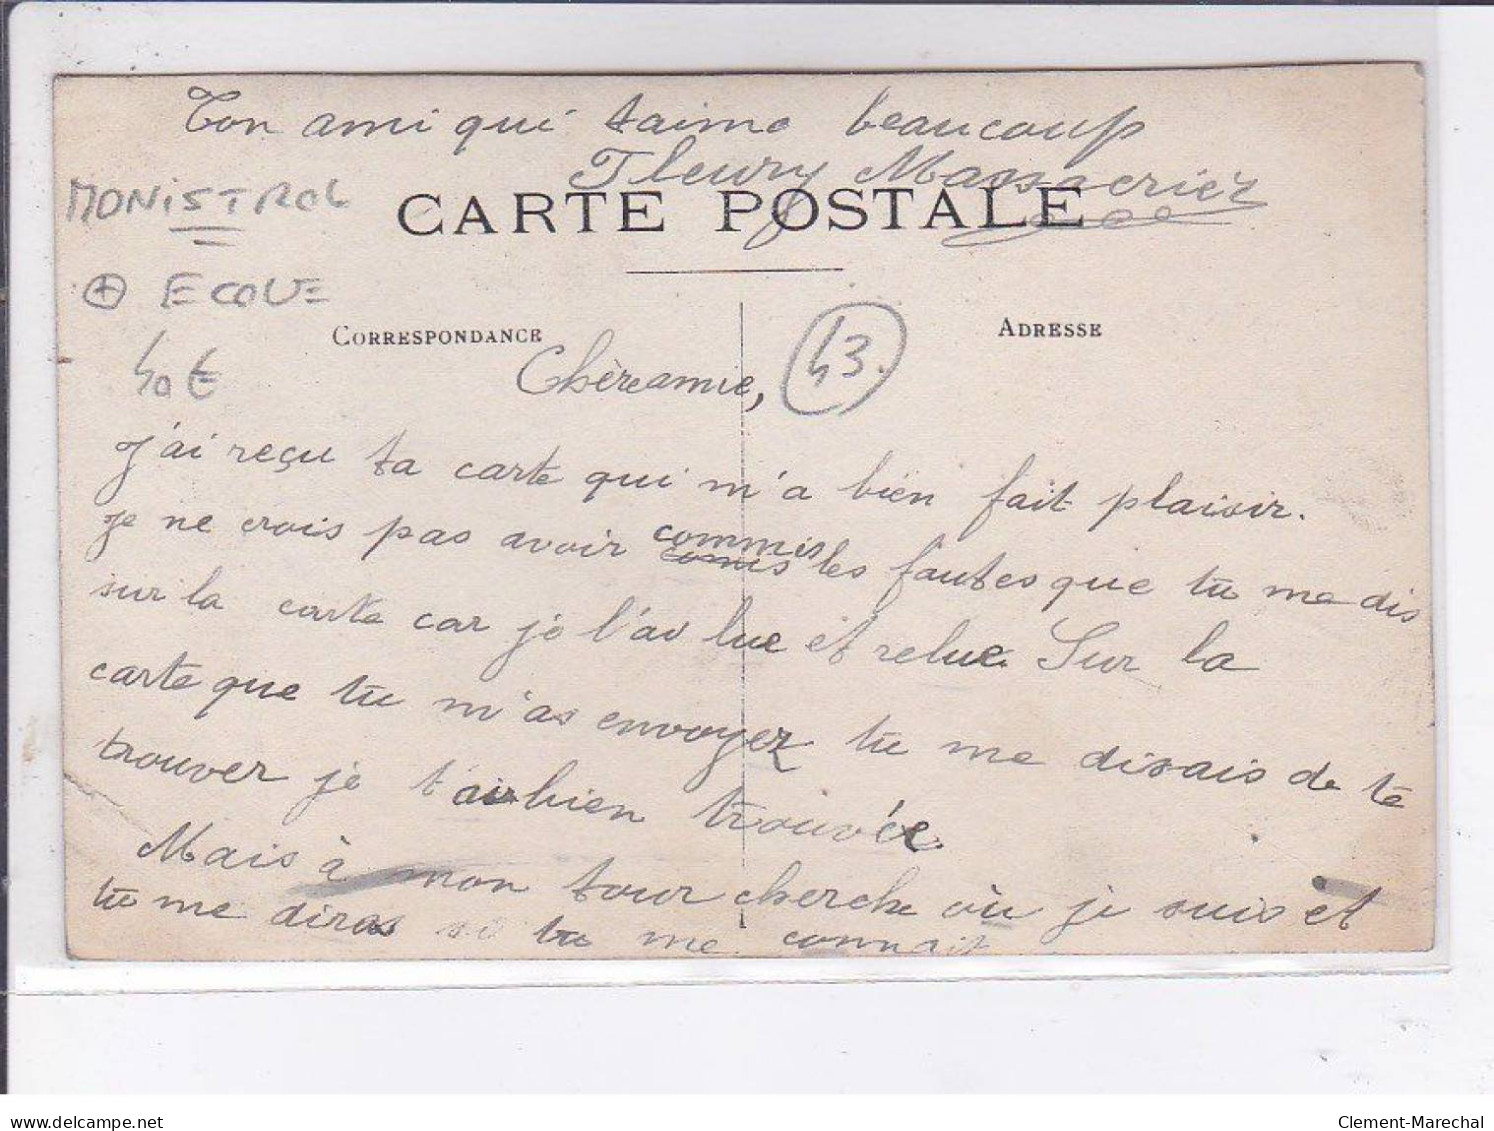 Ton ami qui taime beaucoup
Fleury Massacrier
MONISTROL
CARTE POSTALE
+ ECOLE
CORRESPONDANCE
ADRESSE
40 €
Chère amie,
43.
J'ai reçu ta carte qui m'a bien fait plaisir.
Je ne crois pas avoir commis comis les fautes que tu me dis
sur la carte car je l'ai lue et relue. Sur la
carte que tu m'as envoyez tu me disais de te
trouver je t'ai bien trouvée.
Mais à mon tour cherche où je suis et
tu me diras si tu me connait
delcampe.net
Clement-Marechal